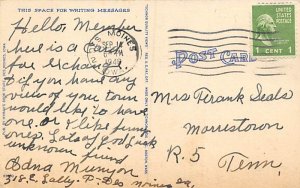 THIS SPACE FOR WRITING MESSAGES
Hello, Member
here is a Card
for exchange
if you have any
view of your town
would like to have
one. or I like funny
ones. Lots of good luck
unknown friend
Edna Munyon
318 E. Des Moines
MOINES
POST CARD
UNITED STATES POSTAGE
1 CENT 1
Mrs Frank Seals
Morristown
R. 5
Tenn.